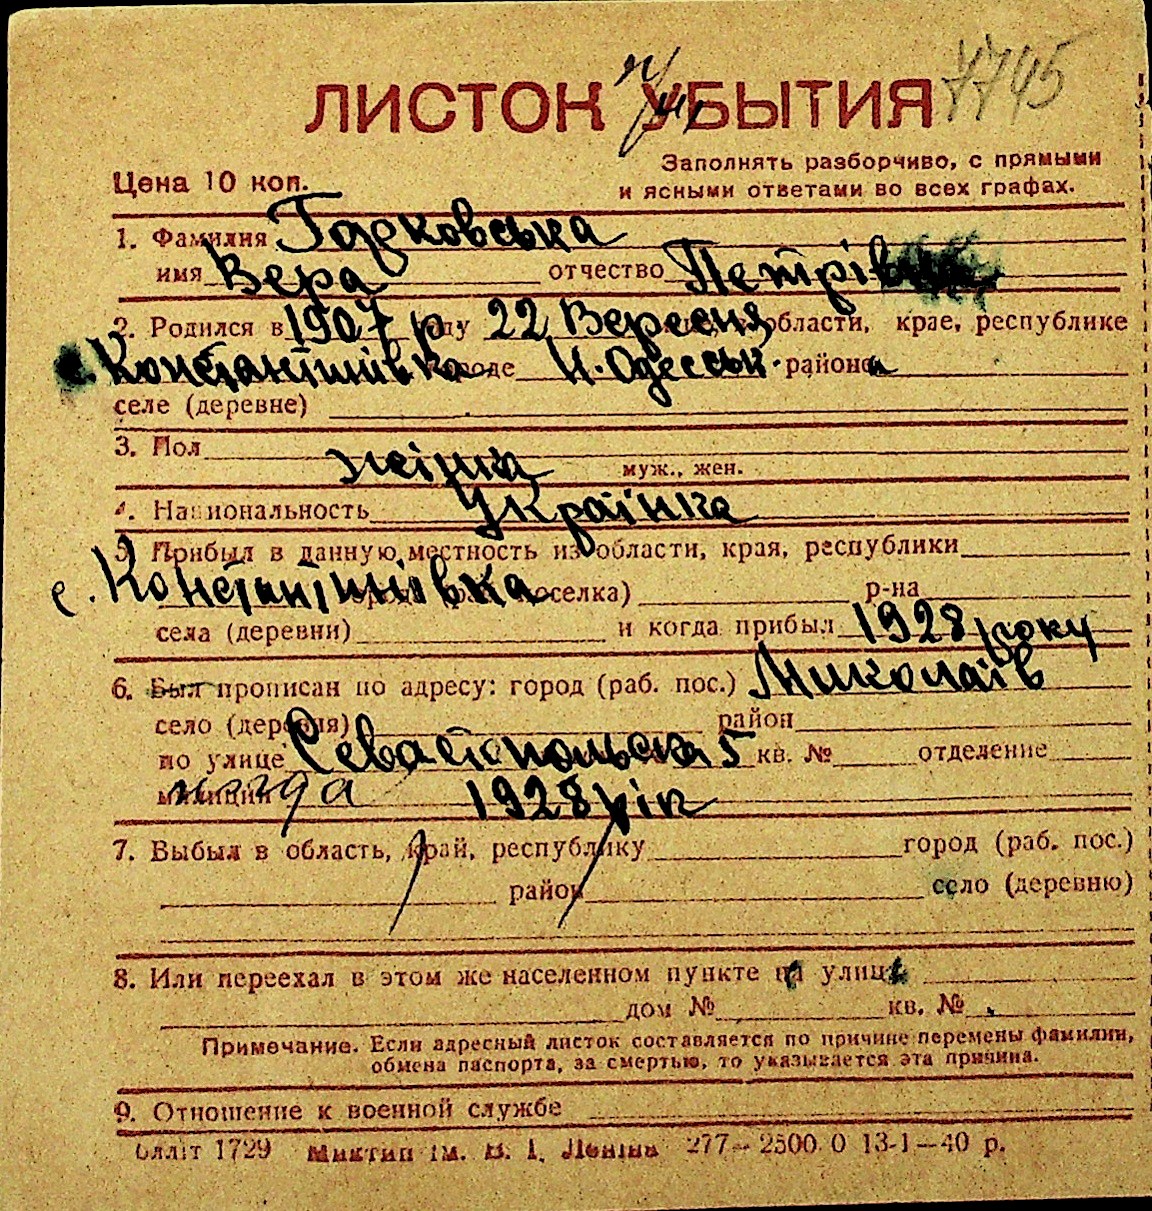 7745
ЛИСТОК УБЫТИЯ
Заполнять разборчиво, с прямыми
Цена 10 коп.
и ясными ответами во всех графах.
1. Фамилия
имя Вера отчество Петрів
2. Родился в 1907 р году 22 Вересня области, крае, республике
с. Константинівка городе Н. Одеськ. района
селе (деревне)
3. Пол жінка муж., жен.
4. Национальность Українка
5. Прибыл в данную местность из области, края, республики
с. Константинівка поселка) р-на
села (деревни) и когда прибыл 1928 року
6. Был прописан по адресу: город (раб. пос.) Миколаїв
село (деревня) район
по улице Севастопольска 5 кв. № отделение
милиции когда 1928 рік
7. Выбыл в область, край, республику город (раб. пос.)
район село (деревню)
8. Или переехал в этом же населенном пункте на улицу
дом № кв. №
Примечание. Если адресный листок составляется по причине перемены фамилии,
обмена паспорта, за смертью, то указывается эта причина.
9. Отношение к военной службе
1729 ім. В. І. Леніна 277—2500.0 13-1—40 р.